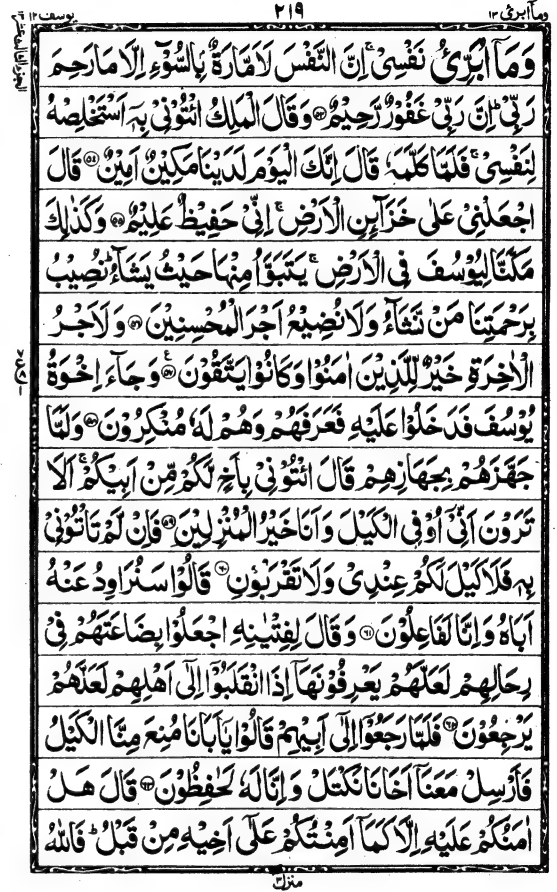 وما ابرئ ١٣ ٢١٩ يوسف ١٢
وَمَآ اُبَرِّئُ نَفْسِىْ ۚ اِنَّ النَّفْسَ لَاَمَّارَةٌۢ بِالسُّوْٓءِ اِلَّا مَا رَحِمَ
رَبِّىْ ؕ اِنَّ رَبِّىْ غَفُوْرٌ رَّحِيْمٌ ﴿۵۳﴾ وَقَالَ الْمَلِكُ ائْتُوْنِىْ بِهٖٓ اَسْتَخْلِصْهُ
لِنَفْسِىْ ۚ فَلَمَّا كَلَّمَهٗ قَالَ اِنَّكَ الْيَوْمَ لَدَيْنَا مَكِيْنٌ اَمِيْنٌ ﴿۵۴﴾ قَالَ
اجْعَلْنِىْ عَلٰى خَزَآئِنِ الْاَرْضِ ۚ اِنِّىْ حَفِيْظٌ عَلِيْمٌ ﴿۵۵﴾ وَكَذٰلِكَ
مَكَّنَّا لِيُوْسُفَ فِى الْاَرْضِ ۚ يَتَبَوَّاُ مِنْهَا حَيْثُ يَشَآءُ ؕ نُصِيْبُ
بِرَحْمَتِنَا مَنْ نَّشَآءُ وَلَا نُضِيْعُ اَجْرَ الْمُحْسِنِيْنَ ﴿۵۶﴾ وَلَاَجْرُ
الْاٰخِرَةِ خَيْرٌ لِّلَّذِيْنَ اٰمَنُوْا وَكَانُوْا يَتَّقُوْنَ ﴿۵۷﴾ وَجَآءَ اِخْوَةُ
يُوْسُفَ فَدَخَلُوْا عَلَيْهِ فَعَرَفَهُمْ وَهُمْ لَهٗ مُنْكِرُوْنَ ﴿۵۸﴾ وَلَمَّا
جَهَّزَهُمْ بِجَهَازِهِمْ قَالَ ائْتُوْنِىْ بِاَخٍ لَّكُمْ مِّنْ اَبِيْكُمْ ۚ اَلَا
تَرَوْنَ اَنِّىْٓ اُوْفِى الْكَيْلَ وَاَنَا خَيْرُ الْمُنْزِلِيْنَ ﴿۵۹﴾ فَاِنْ لَّمْ تَاْتُوْنِىْ
بِهٖ فَلَا كَيْلَ لَكُمْ عِنْدِىْ وَلَا تَقْرَبُوْنِ ﴿۶۰﴾ قَالُوْا سَنُرَاوِدُ عَنْهُ
اَبَاهُ وَاِنَّا لَفَاعِلُوْنَ ﴿۶۱﴾ وَقَالَ لِفِتْيٰنِهِ اجْعَلُوْا بِضَاعَتَهُمْ فِىْ
رِحَالِهِمْ لَعَلَّهُمْ يَعْرِفُوْنَهَآ اِذَا انْقَلَبُوْٓا اِلٰٓى اَهْلِهِمْ لَعَلَّهُمْ
يَرْجِعُوْنَ ﴿۶۲﴾ فَلَمَّا رَجَعُوْٓا اِلٰٓى اَبِيْهِمْ قَالُوْا يٰٓاَبَانَا مُنِعَ مِنَّا الْكَيْلُ
فَاَرْسِلْ مَعَنَآ اَخَانَا نَكْتَلْ وَاِنَّا لَهٗ لَحٰفِظُوْنَ ﴿۶۳﴾ قَالَ هَلْ
اٰمَنُكُمْ عَلَيْهِ اِلَّا كَمَآ اَمِنْتُكُمْ عَلٰٓى اَخِيْهِ مِنْ قَبْلُ ؕ فَاللّٰهُ
منزل ٣